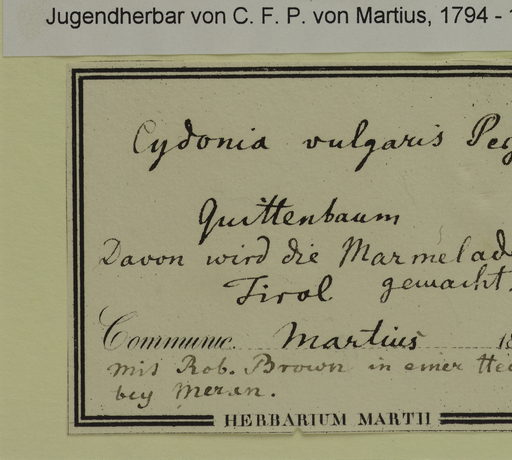 Jugendherbar von C. F. P. von Martius, 1794 -
Cydonia vulgaris
Quittenbaum
Davon wird die Marmelad
Tirol gemacht.
Communic. Martius 18
mit Rob. Brown in einer
bey Meran.
HERBARIUM MARTII